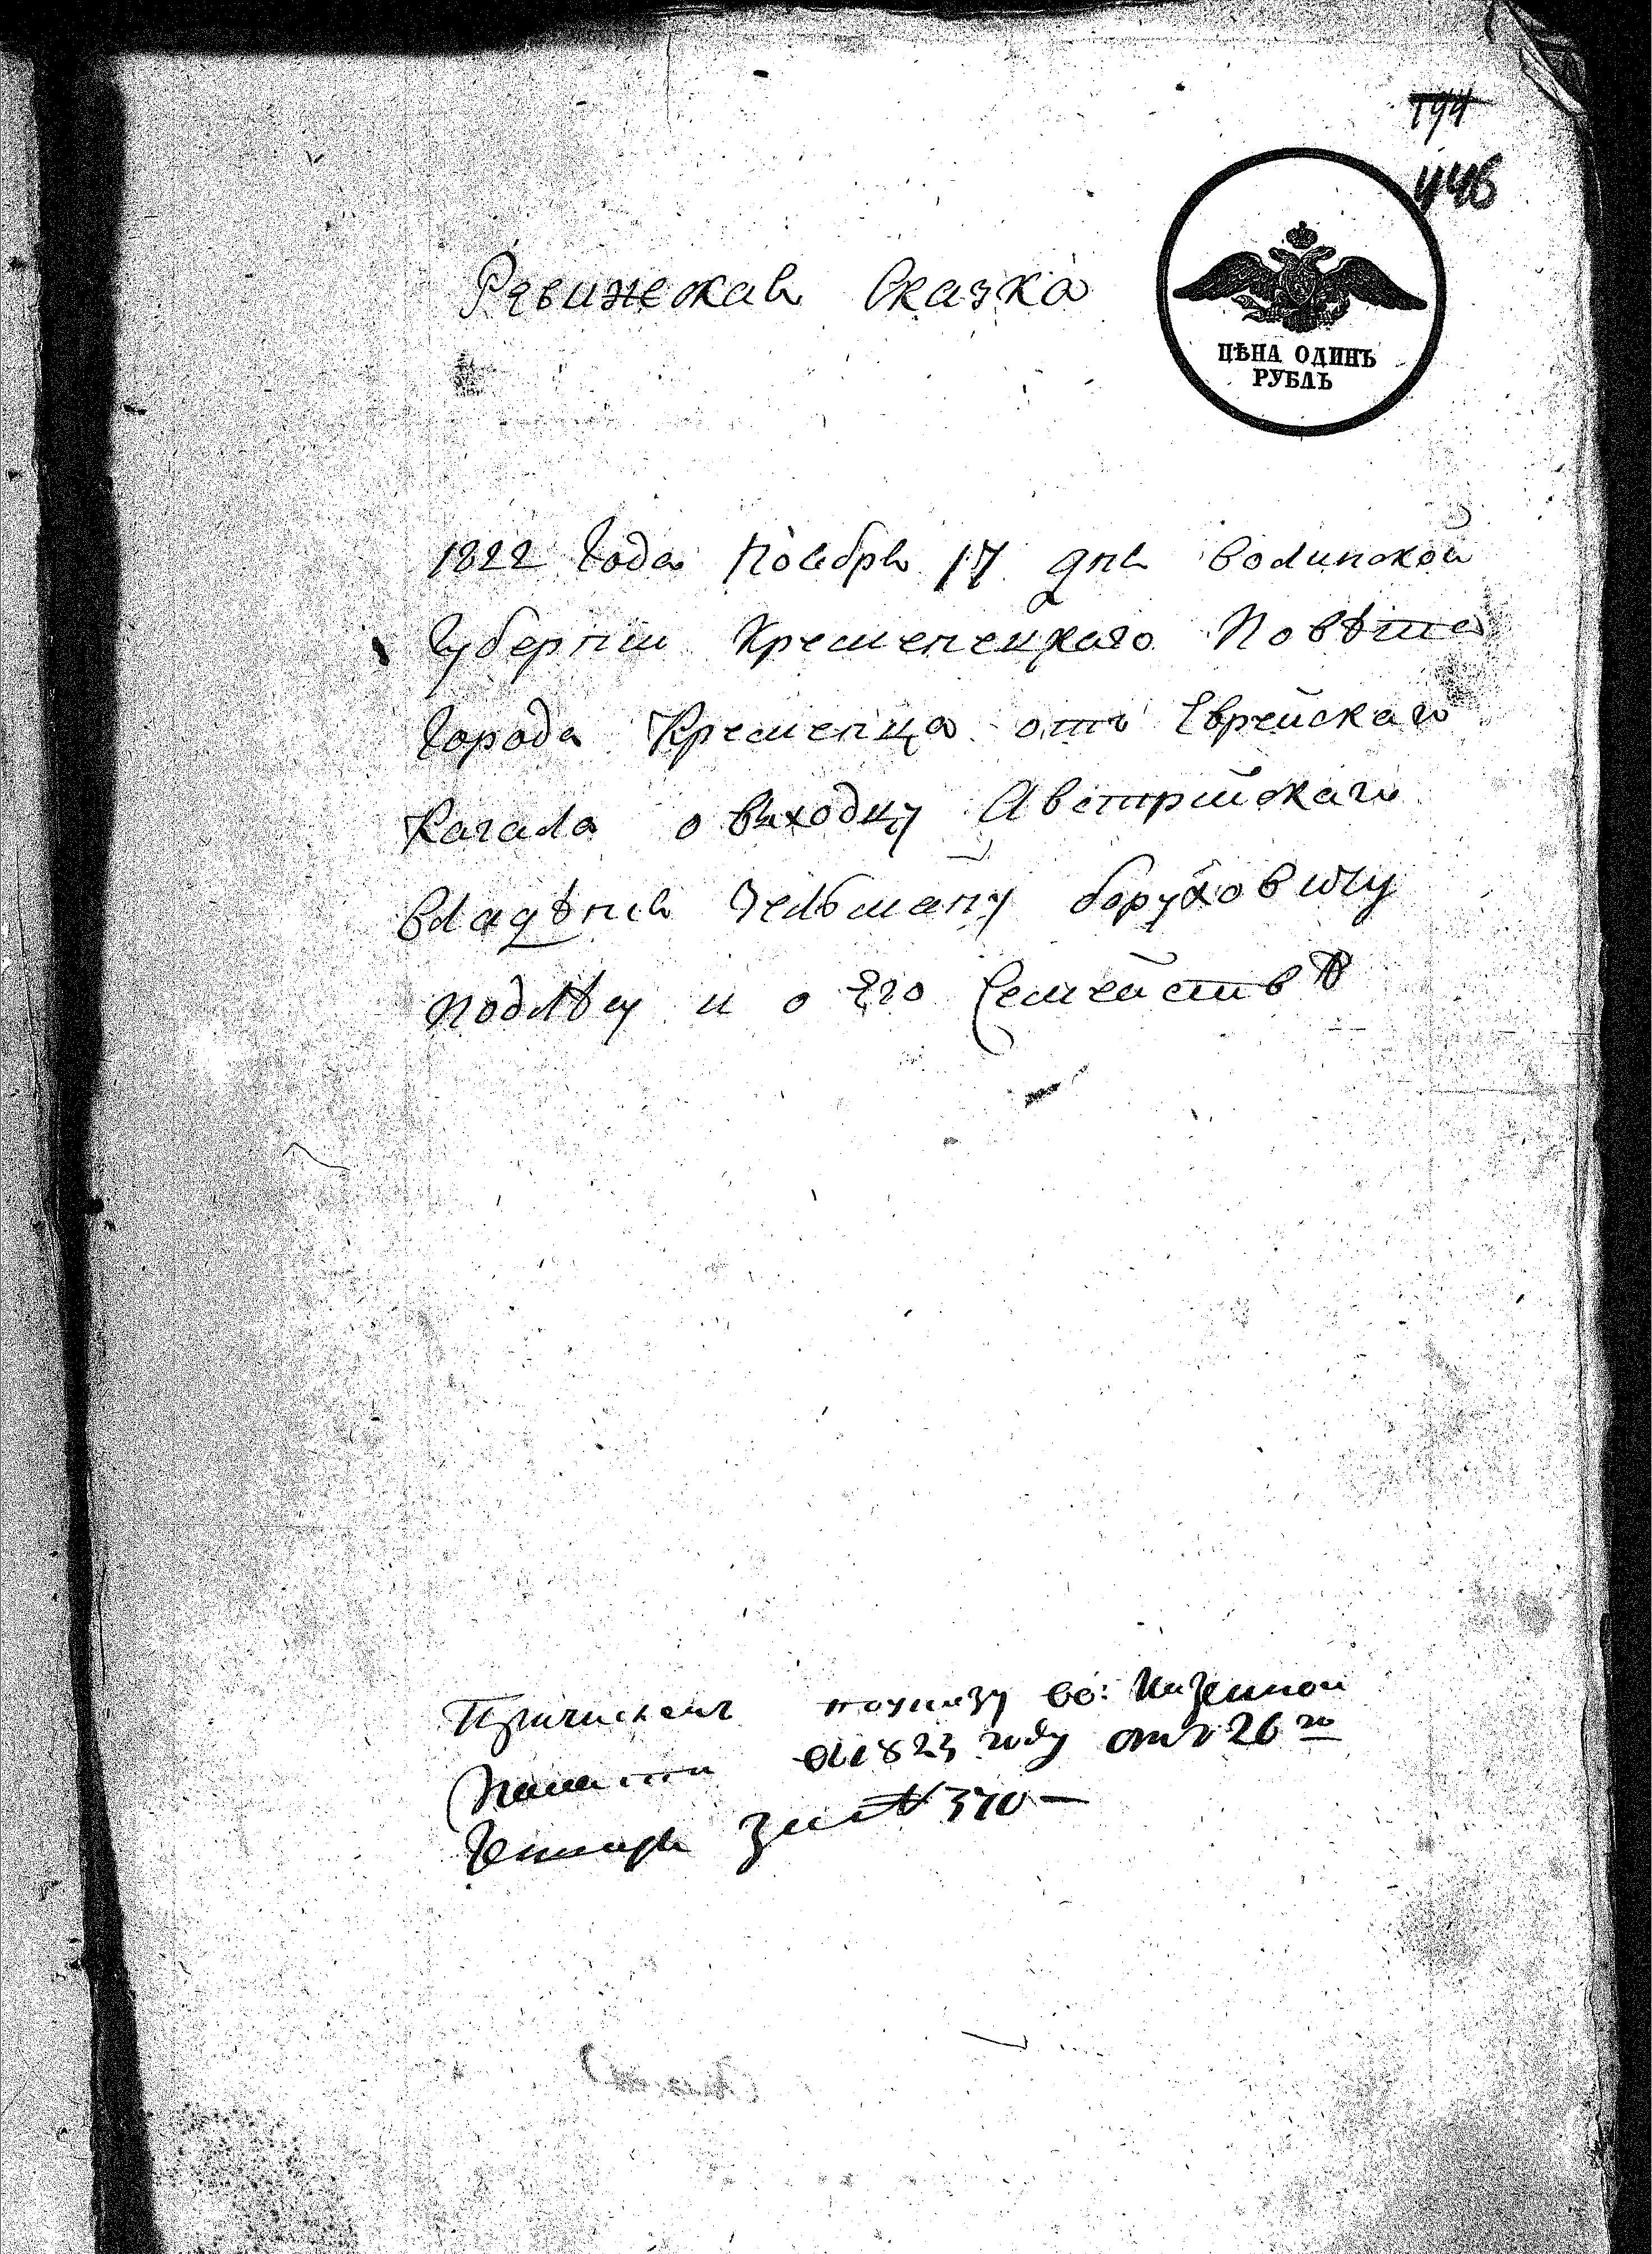 194
446
Ревижская Сказка
ЦѢНА ОДИНЪ
РУБЛЬ
1822 Года Ноября 17 дня Волинской
Губернии Кременецкаго Повѣта
Города Кременца отъ Еврейскаго
Кагала о виходцу Австрийскаго
владѣния Зельману Боруховичу
и о Его Семействѣ
Причисленъ поуказу Казенной
Палаты 1823 году отъ 26 го
Генваря за № 370 —